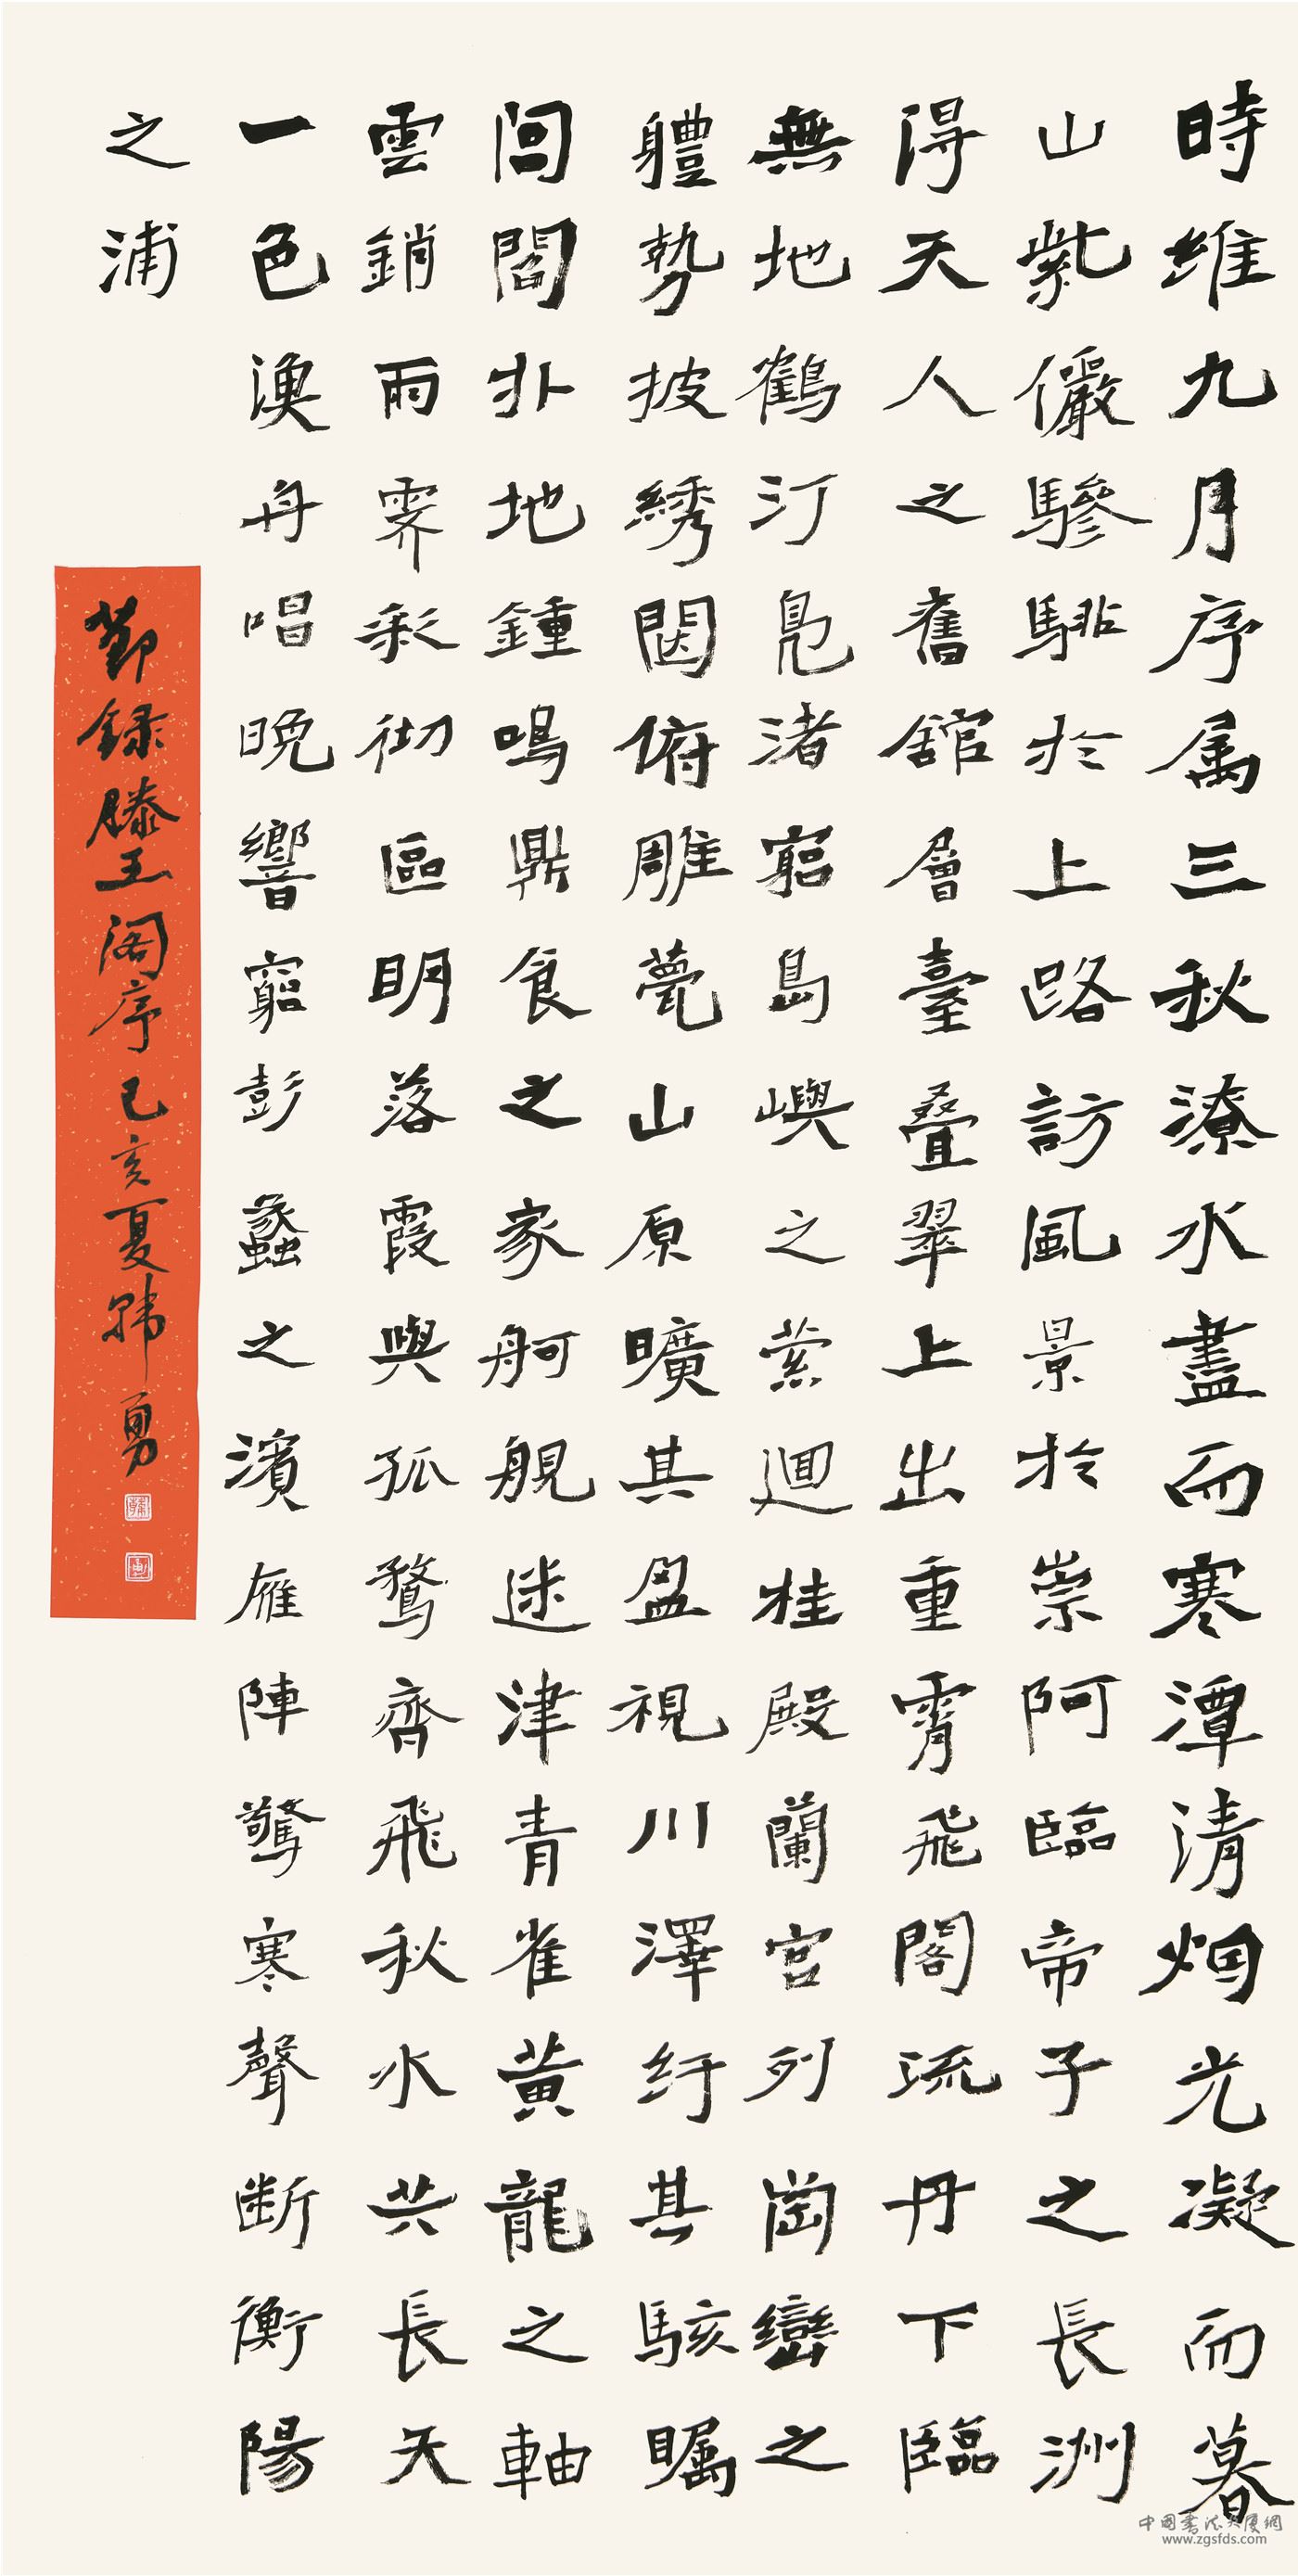 時維九月序属三秋潦水盡而寒潭清烟光凝而暮
山紫儼驂騑於上路訪風景於崇阿臨帝子之長洲
得天人之舊舘層臺叠翠上出重霄飛閣流丹下臨
無地鶴汀凫渚窮島嶼之萦迴桂殿蘭宫列崗巒之
軆勢披綉闥俯雕甍山原曠其盈視川澤纡其駭矚
闾閻扑地鍾鳴鼎食之家舸舰迷津青雀黄龍之軸
雲銷雨霁彩彻區明落霞與孤鹜齊飛秋水共長天
一色漁舟唱晚響窮彭蠡之濱雁陣驚寒聲断衡陽
之浦
節録滕王阁序己亥夏韩勇
中国書法大厦網
www.zgsfds.com